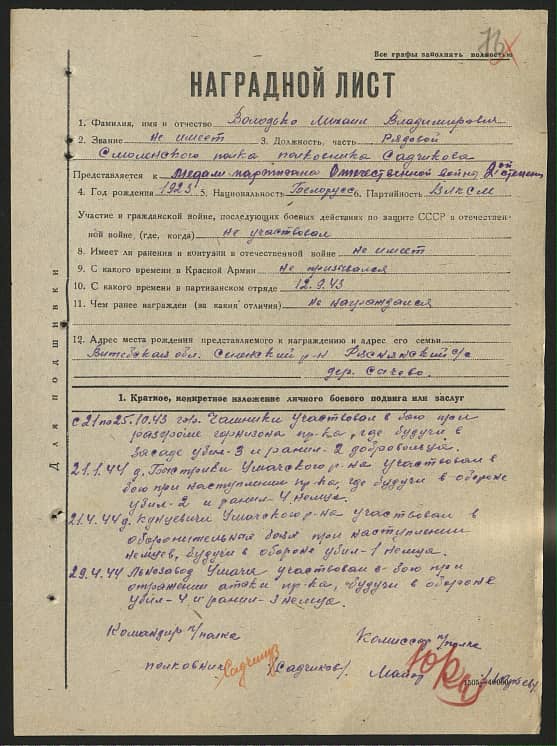 Все графы заполнять полностью
13
НАГРАДНОЙ ЛИСТ
1. Фамилия, имя и отчество Володько Михаил Владимирович
2. Звание не имеет 3. Должность, часть Рядовой
Смоленского полка полковника Садчикова
Представляется к медали партизана Отечественной войны 2ой степени
4. Год рождения 1923 5. Национальность Белорусс 6. Партийность ВЛКСМ
Участие и гражданской войне, последующих боевых действиях по защите СССР в отечествен-
ной войне, (где, когда) не участвовал
8. Имеет ли ранения и контузии в отечественной войне не имеет
9. С какого времени в Красной Армии не призывался
10. С какого времени в партизанском отряде 12.9.43
11. Чем ранее награжден (за какия отличия) не награждался
12. Адрес места рождения представляемого к награждению и адрес его семьи
Витебская обл. Сененский р-н Ряснянский с/с
дер. Сачево.
Для подшивки
1. Краткое, конкретное изложение личного боевого подвига или заслуг
с 21 по 25.10.43 гор. Чашники участвовал в бою при
разгроме гарнизона пр-ка, где будучи в
засаде убил-3 и ранил-2 добровольца.
21.1.44 д. Ушачского р-на участвовал в
бою при наступлении пр-ка, где будучи в обороне
убил-2 и ранил-4 немца.
21.4.44 д. Кунцевичи Ушачского р-на участвовал в
оборонительных боях при наступлении
немцев, будучи в обороне убил-1 немца.
29.4.44 Льнозавод Ушачи участвовал в бою при
отражении атаки пр-ка, будучи в обороне
убил-4 и ранил-3 немца.
Командир п/полка Комиссар п/полка
полковник Садчиков /Садчиков/. Майор